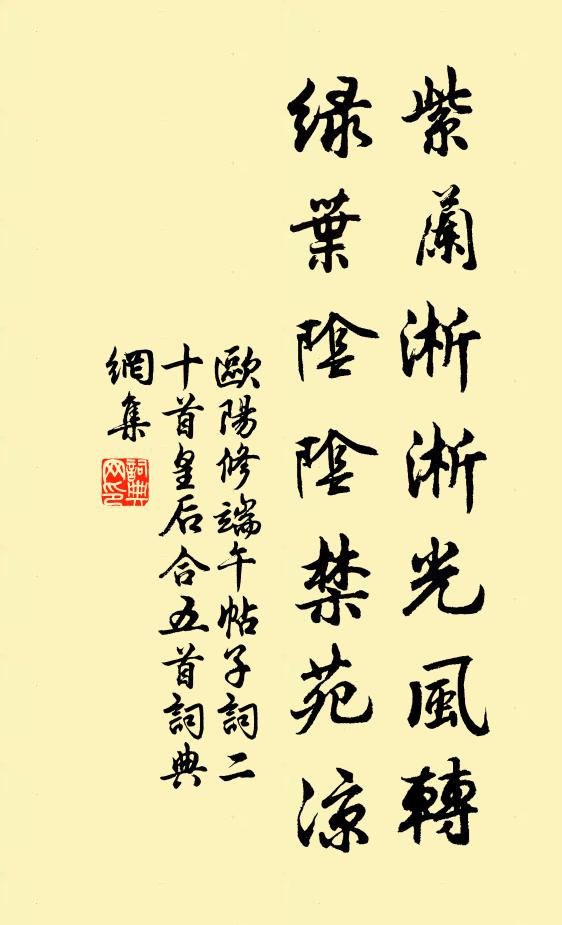 紫蘭淅淅光風轉
綠葉陰陰禁苑涼
歐陽修端午帖子詞二
十首皇后合五首詞典
網集
詞典網印